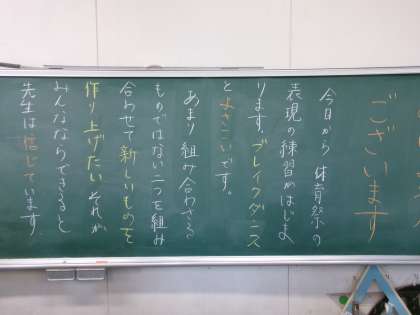 ございます
今日から 体育祭の
表現の練習がはじま
ります。ブレイクダンス
とよさこいです。
あまり組み合わさる
ものではない二つを組み
合わせて新しいものを
作り上げたい。それが
みんなならできると
先生は信じています